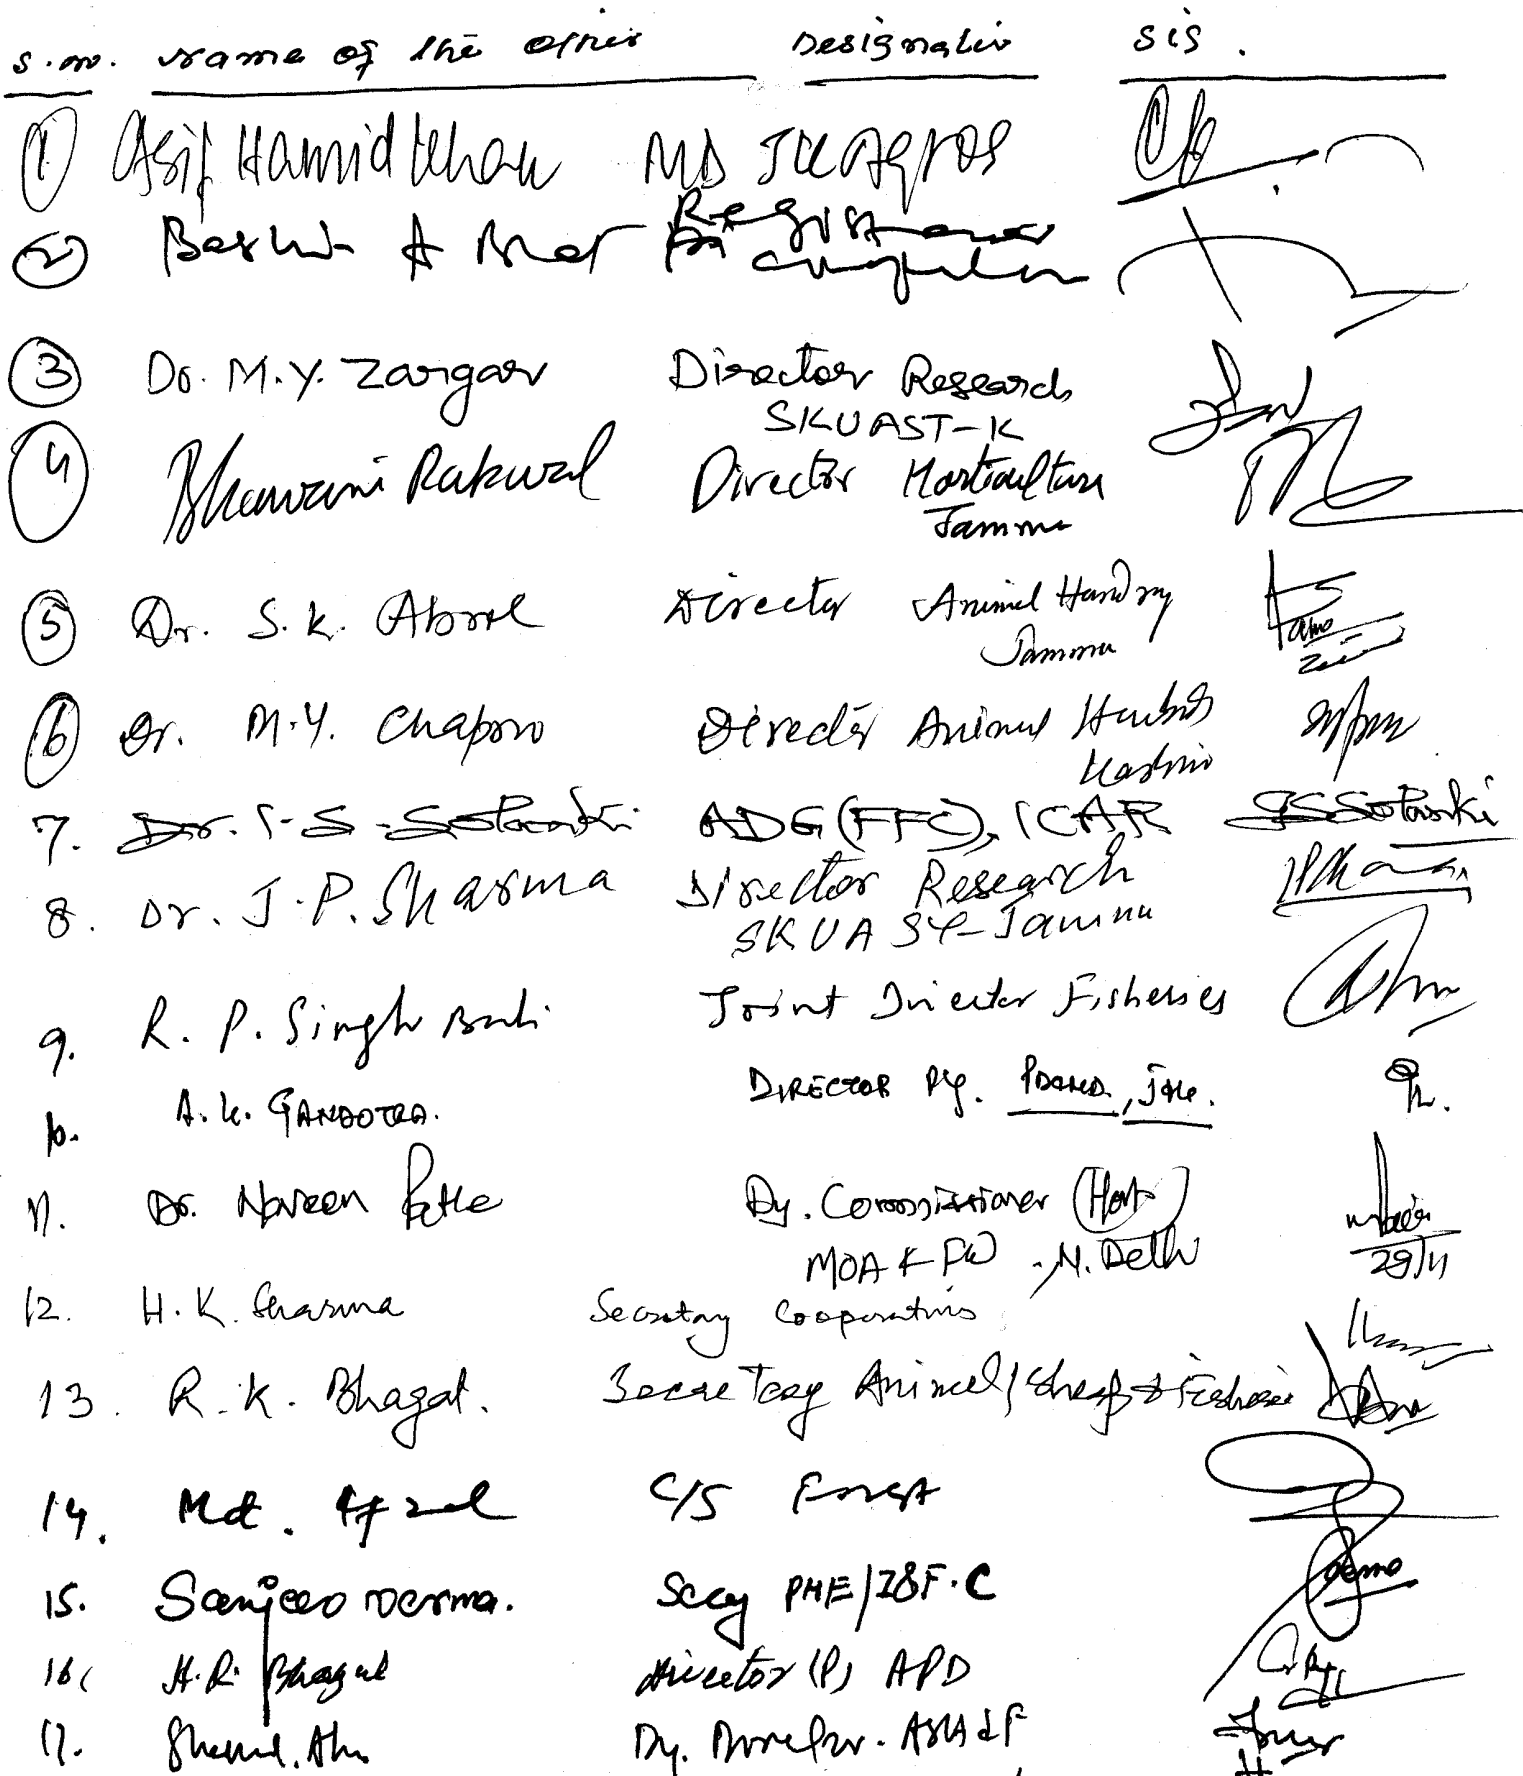 S.no. Name of the officer Designation Sig.
1 Asif Hamid Khan MD JK Agros
2 Bashir A Bhat Registrar
3 Dr. M.Y. Zargar Director Research
SKUAST-K
4 Bhawani Rakwal Director Horticulture
Jammu
5 Dr. S.K. Abrol Director Animal Handry
Jammu
6 Dr. M.Y. Chaproo Director Animal
Kashmir
7. Dr. I.S. Solanki ADG (FFC), ICAR ISSolanki
8. Dr. J.P. Sharma Director Research
SKUAST-Jammu
9. R. P. Singh Joint Director Fisheries
10. A.K. GANDOTRA. DIRECTOR J&K.
11. Dr. Naveen Patle Dy. Commissioner (Hort)
MOA & FW, N. Delhi 29/11
12. H.K. Sharma Secretary Cooperatives
13. R.K. Bhagat. Secretary Animal/Sheep & Fisheries
14. Md. Afzal C/S Forest
15. Sanjeev Verma. Secy PHE/I&F.C
16. H.R. Bhagat Director (P) APD
17. Dy. Director.